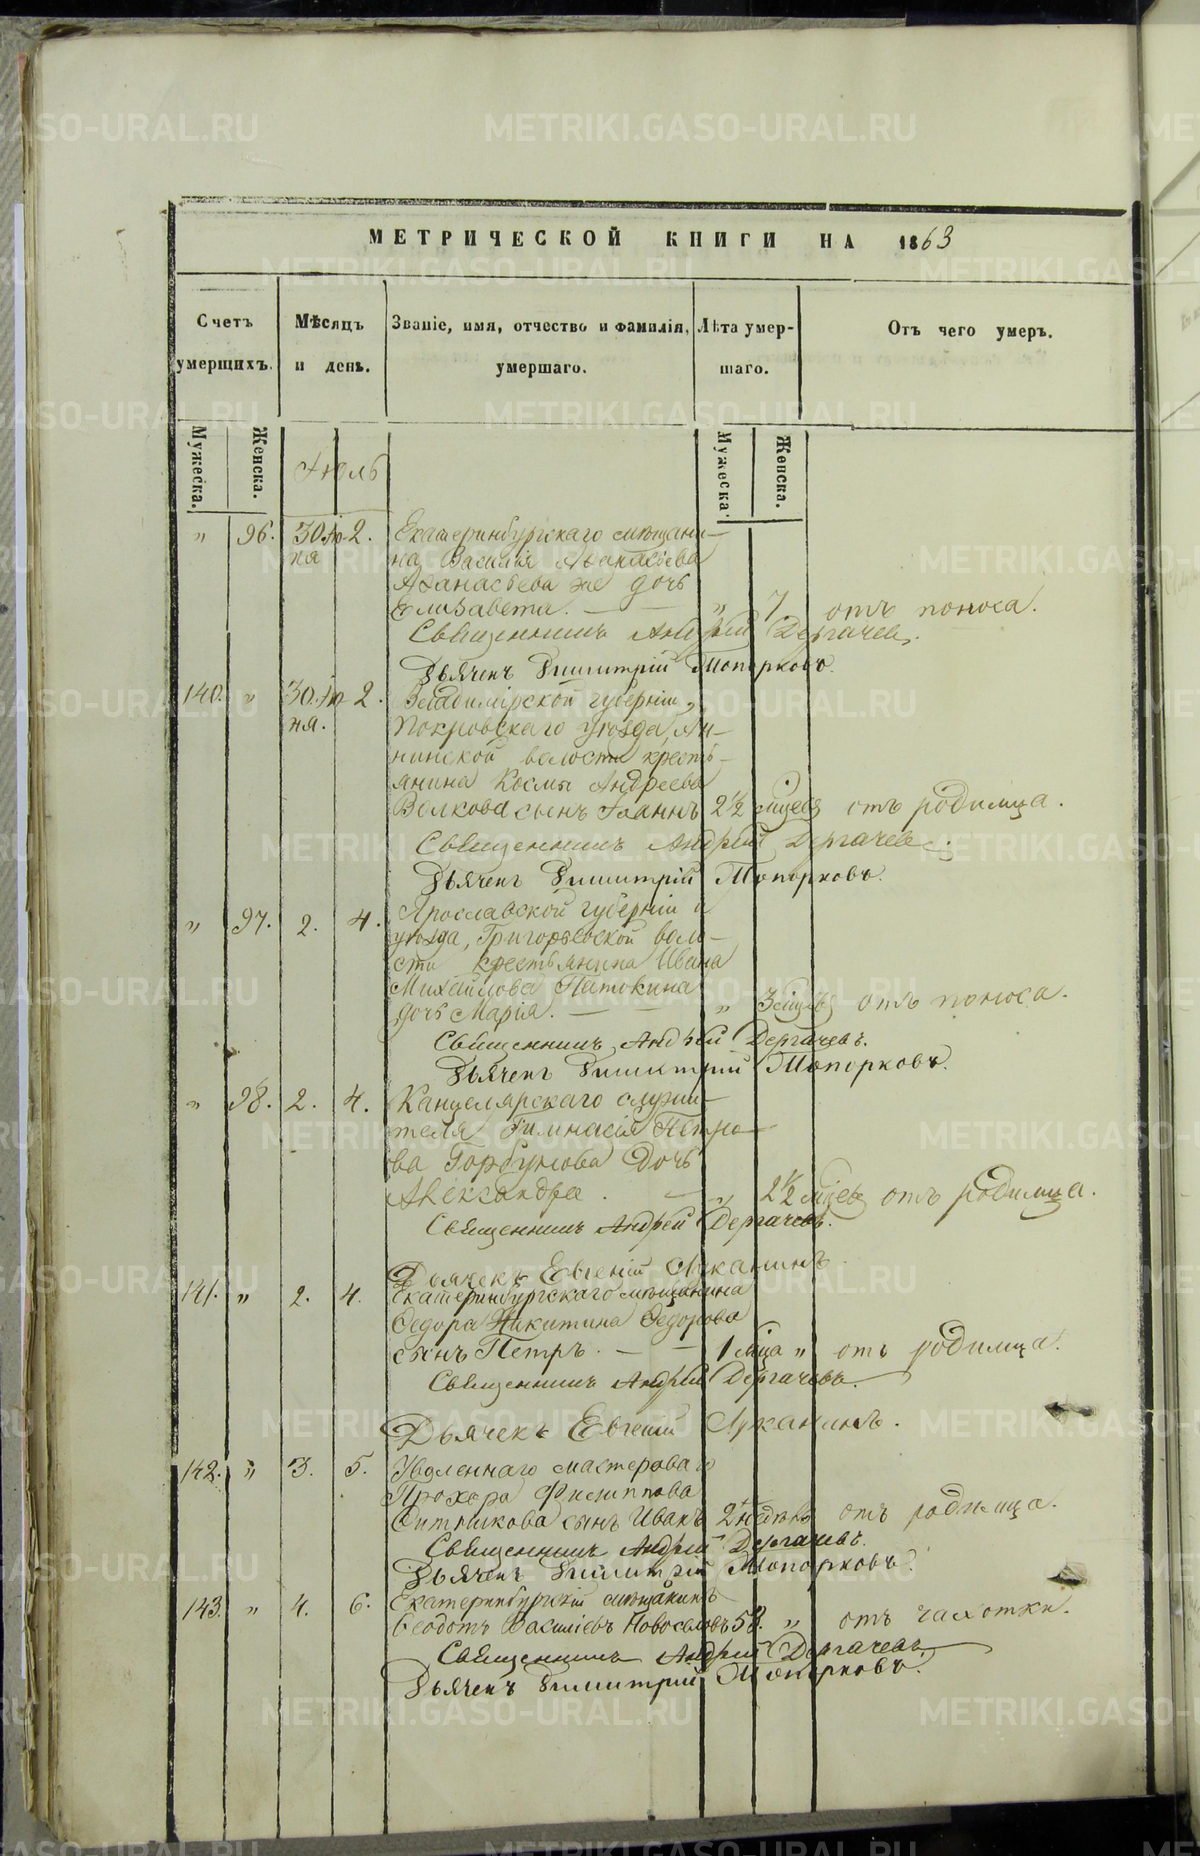 МЕТРИЧЕСКОЙ КНИГИ НА 1863
Счетъ умерщихъ.
Мѣсяцъ и день.
Званіе, имя, отчество и фамилія, умершаго.
Лѣта умер-шаго.
Отъ чего умеръ.
Мужеска. Женска.
Іюль
Мужеска. Женска.
" 96. 30. Iю- 2. Екатеринбургскаго мѣщани-
ня на Василія Аѳанасіева
Аѳанасьева же дочь
Елизавета. — — " 7 отъ поноса.
Священникъ Андрей Дергачевъ.
Дьячекъ Димитрій Топорковъ.
140. " 30. Iю- 2. Владимірской губерніи,
ня. Покровскаго уѣзда, Ан-
нинской волости кресть-
янина Космы Андреева
Волкова сынъ Іоаннъ 2½ мѣсяца отъ родимца.
Священникъ Андрей Дергачевъ.
Дьячекъ Димитрій Топорковъ.
" 97. 2. 4. Ярославской губерніи и
уѣзда, Григорьевской воло-
сти крестьянина Ивана
Михайлова Патокина
дочь Марія. — — " отъ поноса.
Священникъ Андрей Дергачевъ.
Дьячекъ Димитрій Топорковъ.
" 98. 2. 4. Канцелярскаго служи-
теля Гимназіи Петро-
ва Горбунова дочь
Александра. — " 2½ мѣсяца отъ родимца.
Священникъ Андрей Дергачевъ.
Дьячекъ Евгеній Луканинъ.
141. " 2. 4. Екатеринбургскаго мѣщанина
Ѳедора Никитина Ѳедорова
сынъ Петръ. — — 1 мѣсяца " отъ родимца.
Священникъ Андрей Дергачевъ.
Дьячекъ Евгеній Луканинъ.
142. " 3. 5. Уволеннаго мастероваго
Прохора Филиппова
Ситникова сынъ Иванъ 2 недѣль отъ родимца.
Священникъ Андрей Дергачевъ.
Дьячекъ Димитрій Топорковъ.
143. " 4. 6. Екатеринбургскій мѣщанинъ
Ѳеодотъ Василіевъ Новоселовъ 58. " отъ чахотки.
Священникъ Андрей Дергачевъ
Дьячекъ Димитрій Топорковъ.
METRIKI.GASO-URAL.RU